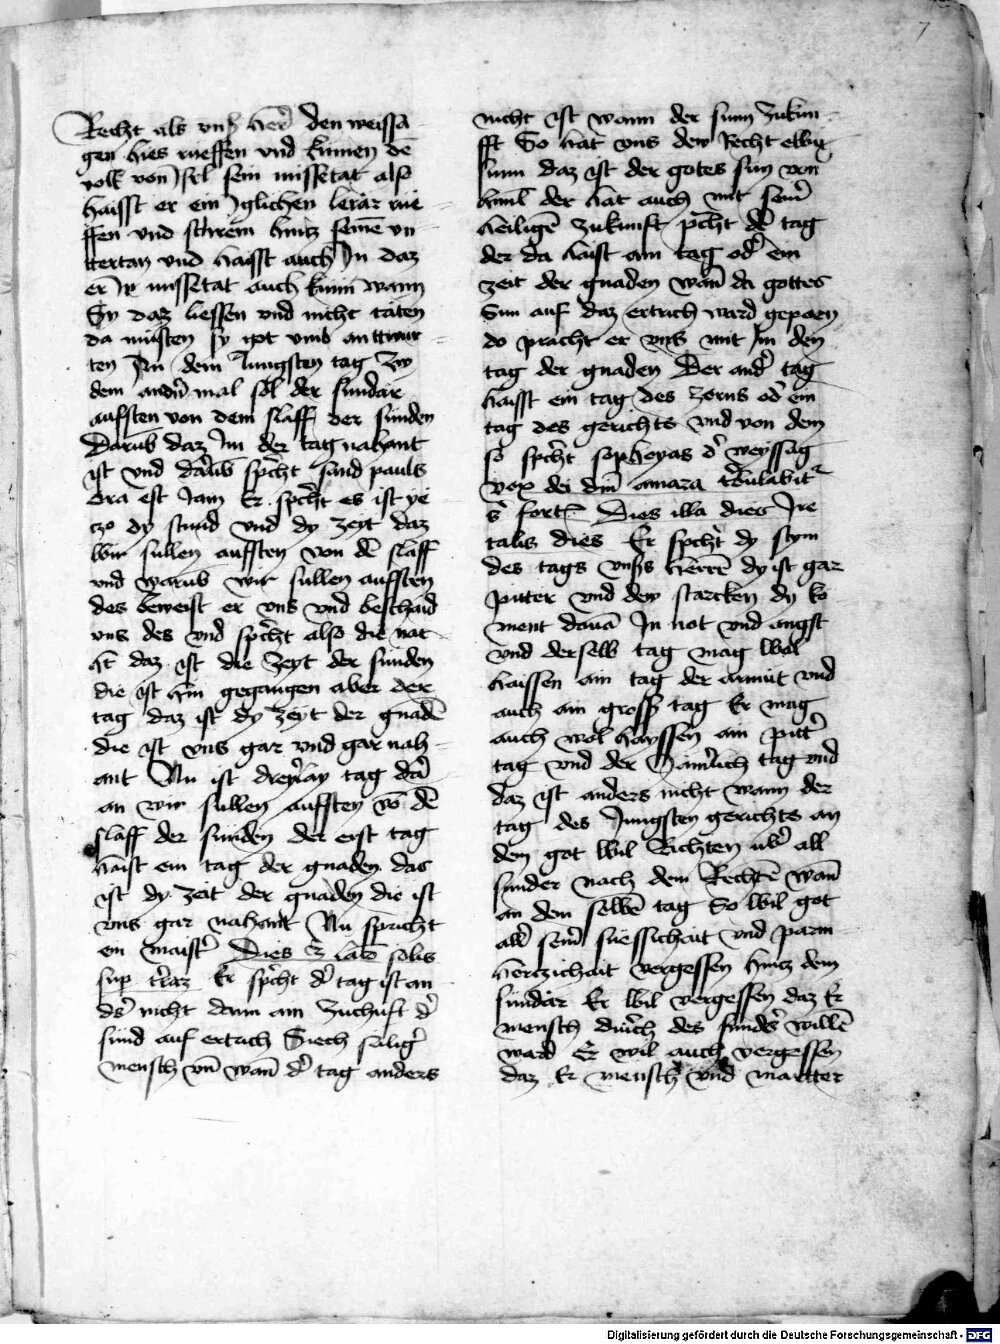 7
Recht als vnser herr den weissa
gen hies rueffen vnd kunnen dē
volk von jsrl sein missetat also
haisst er ein yglichen lerär rue
ffen vnd schrein hintz seinē vn
tertan vnd haisst auch In daz
er Ir missetat auch kunn wann
Sy daz liessen vnd nicht täten
da müsten sy got vmb anttwur
ten An dem Jungsten tag zw
dem andn̄ mal sol der sundär
aufsten von dem slaff der sunden
Darub daz Im der tag nahent
ist vnd darūb spricht sand pauls
ora est Jam Er spricht es ist ye
zo dy stund vnd dy zeyt daz
wir sullen aufsten von dē slaff
vnd warūb wir sullen aufsten
des beweist er vns vnd beschaid
vns des vnd spricht also die nac
ht daz ist die zeyt der sunden
die ist hin gegangen aber der
tag daz ist dy zeyt der gnadē
die ist vns gar vnd gar nah
ant Nu ist dreyrlay tag dar
an wir sullen aufsten vō dē
slaff der sunden der erst tag
haist ein tag der gnaden das
ist dy zeit der gnaden die ist
vns gar nahent Nu spricht
ein maister Dies est lacō solis
sup t̄raz Er spricht der tag ist an
ders nicht dann ain zuchuft der
sunn auf ertrich Siech saliger
mensch vn̄ wan̄ der tag anders
nicht ist wann der sunn zukun
fft So hat vns dew Recht ewig
sunn daz ist der gotes sun von
himl der hat auch mit seiner
heiligē zukunft pracht den tag
der da haist ain tag oder ein
zeit der gnaden wan̄ da gottes
Sun auf daz ertrich ward geporn
do pracht er vns mit Im den
tag der gnaden Der ander tag
haisst ein tag des zorns oder ein
tag des gerichts vnd von dem
so spricht sopheyas der weyssag
vox dei dm̄ amara tribulabitur
ibi fortis Dies illa dies Ire
talis dies Er spricht dy stym
des tags vnsers herrē dy ist gar
pitter vnd dew starcken dy ko
ment dauā In not vnd angst
vnd derselb tag mag wol
haissen ain tag der armut vnd
auch ain gross tag Er mag
auch wol hayssen ain pitter
tag vnd der Jämerlich tag vnd
daz ist anders nicht wann der
tag des Jungsten gerichts an
dem got wil Richten uber all
sunder nach dem Rechtē wan̄
an dem selbē tag So wil got
aller seiner suessichait vnd parm
hertzichait vergessen hintz dem
sündär Er wil vergessen daz Er
mensch durch des sunders willē
ward Er wil auch vergessen
daz Er mensch vnd martter
Digitalisierung gefördert durch die Deutsche Forschungsgemeinschaft - DFG